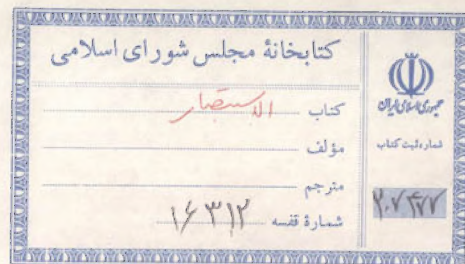 کتابخانهٔ مجلس شورای اسلامی
کتاب الاستبصار
مؤلف
مترجم
شمارهٔ قفسه ۱۶۳۱۲
جمهوری اسلامی ایران
شماره ثبت کتاب
۲۰۷۴۷۷